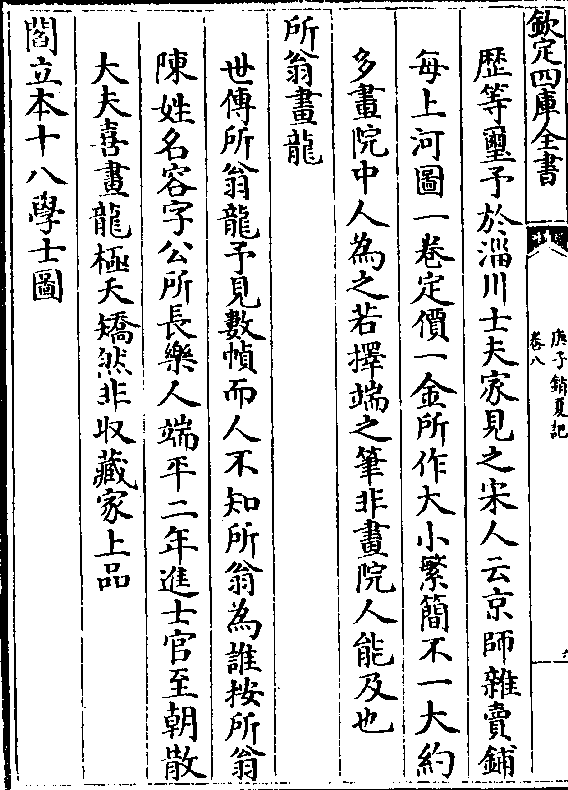 欽定四庫全書
庚子銷夏記
卷八
歴等璽予於淄川士夫家見之宋人云京師雜賣鋪
每上河圖一卷定價一金所作大小繁簡不一大約
多畫院中人為之若擇端之筆非畫院人能及也
所翁畫龍
世傳所翁龍予見數幀而人不知所翁為誰按所翁
陳姓名容字公所長樂人端平二年進士官至朝散
大夫喜畫龍極夭矯然非収藏家上品
閻立本十八學士圖